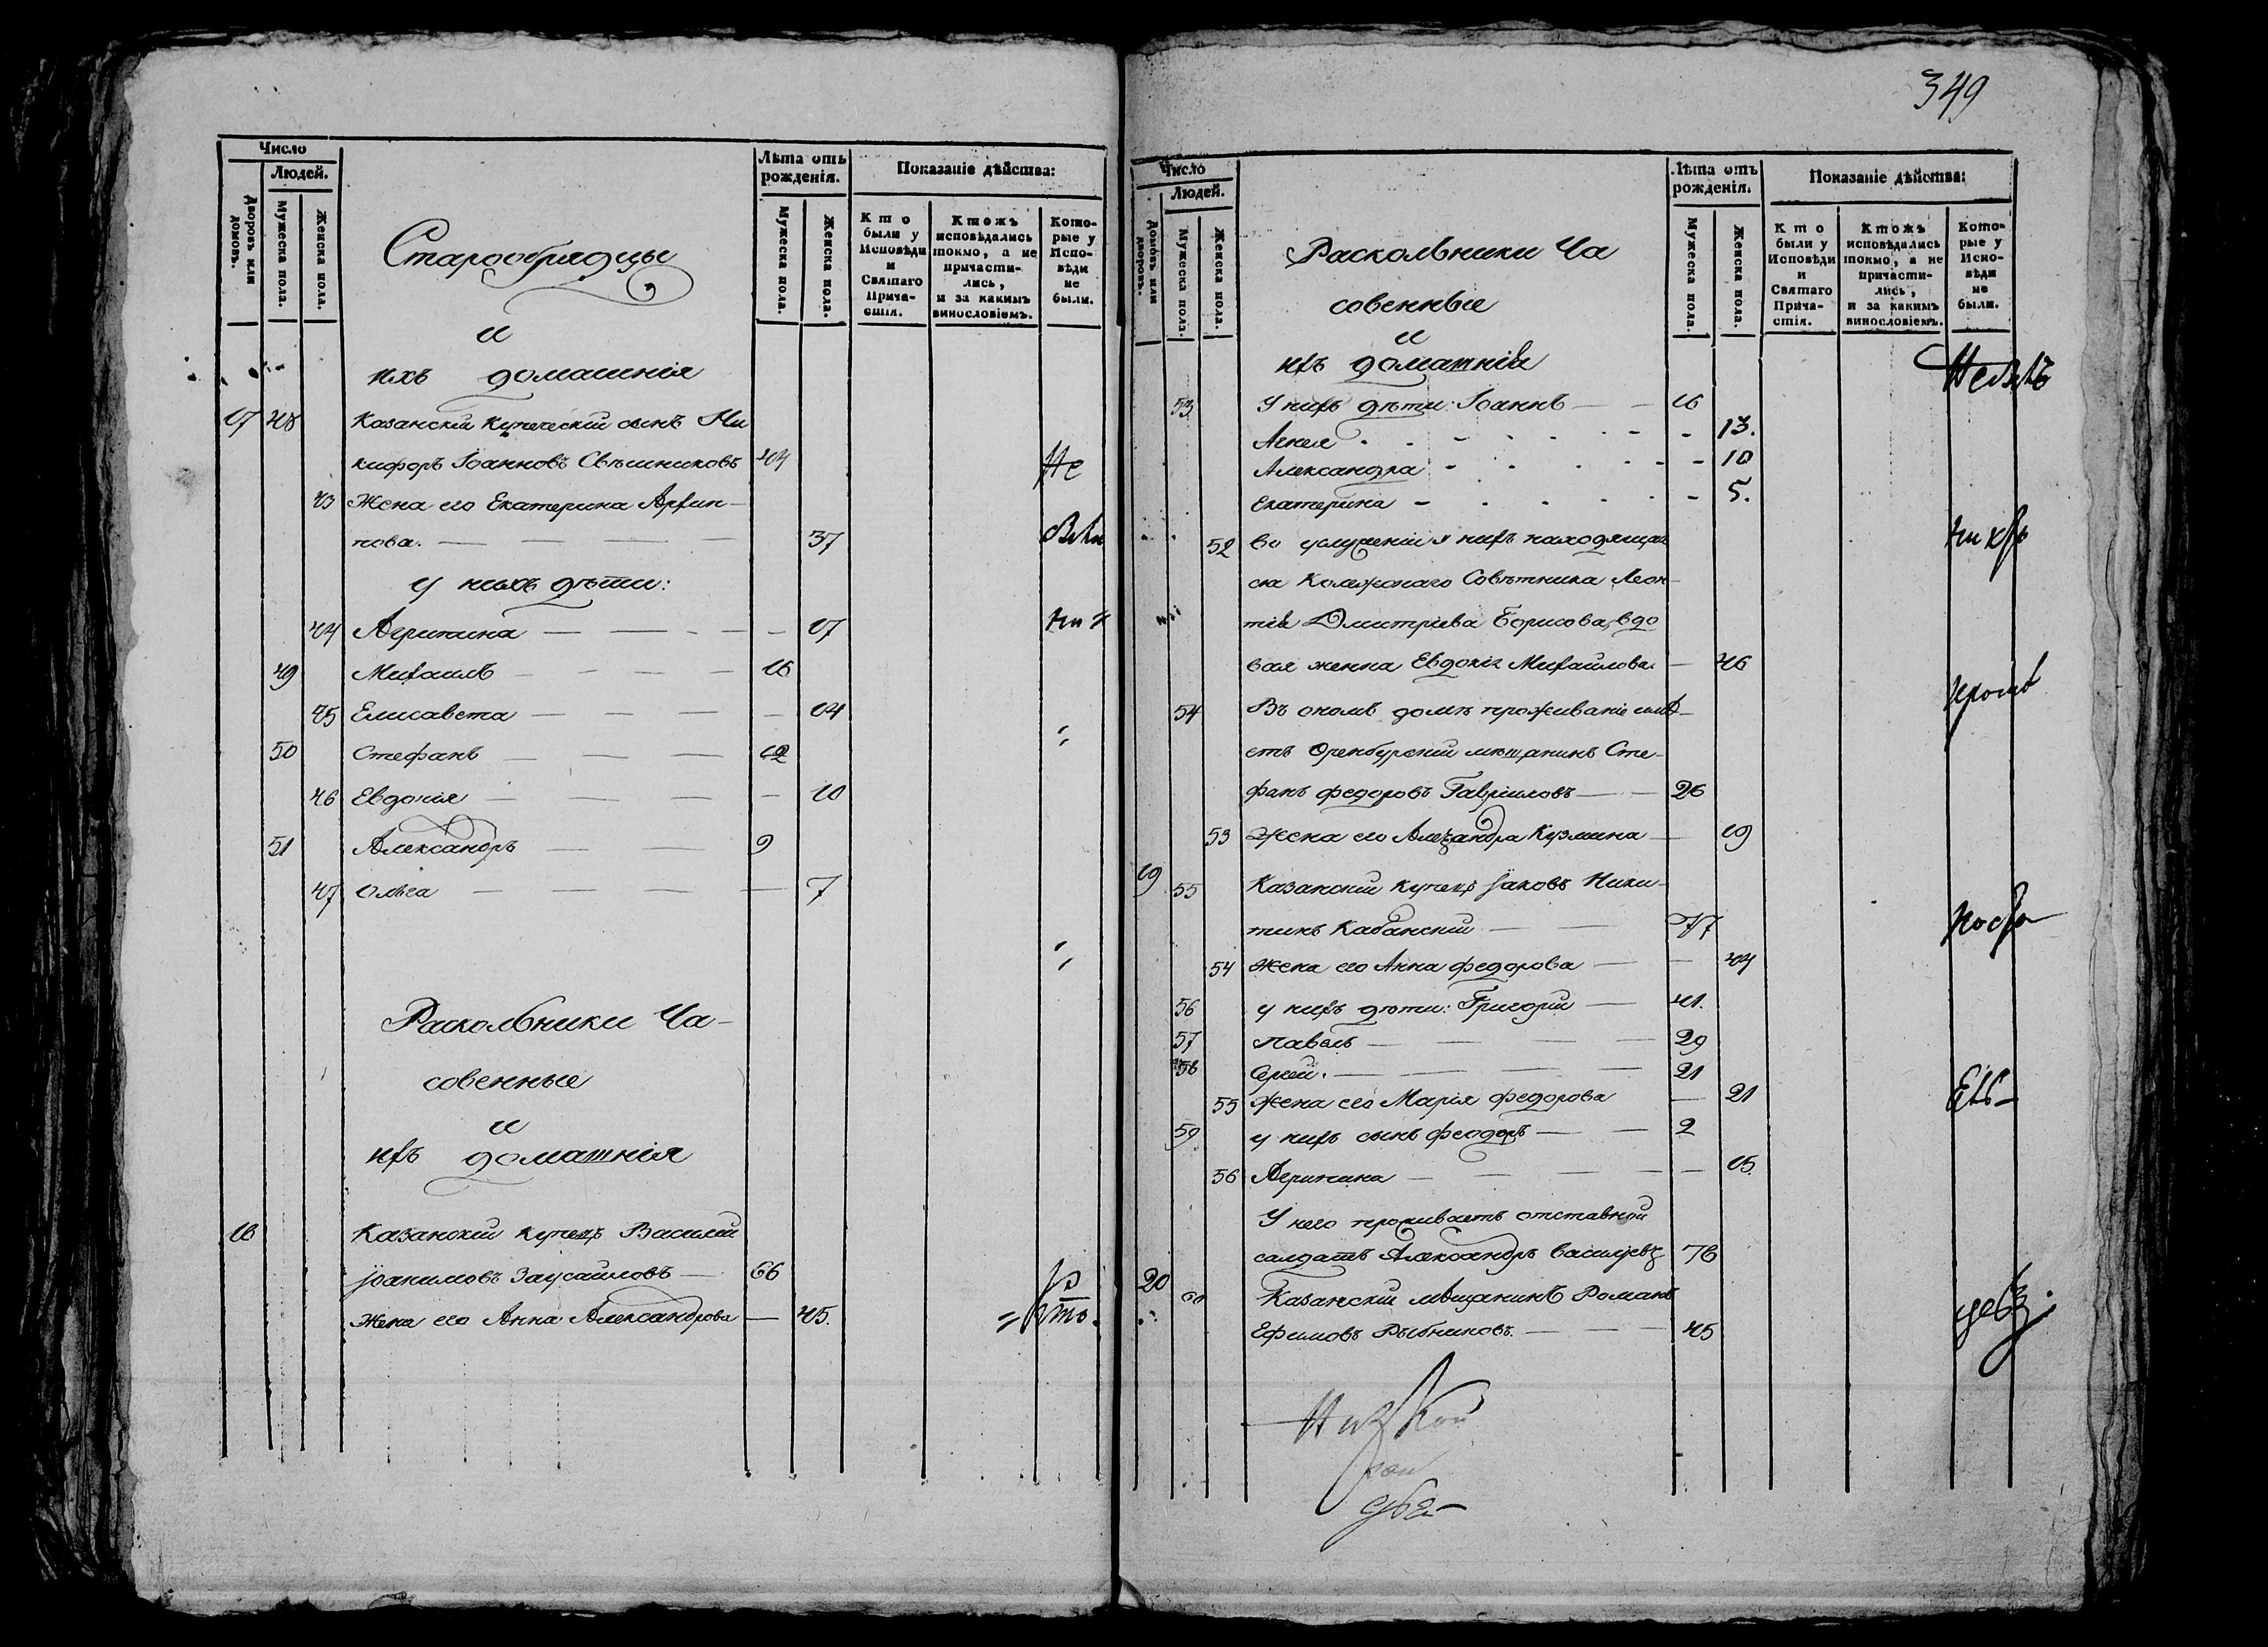 Число
Людей.
Дворовъ или домовъ.
Мужеска пола.
Женска пола.
Лѣта отъ рожденія.
Мужеска пола.
Женска пола.
Показаніе дѣйства:
Кто были у Исповѣди и Святаго Прича-стія.
Ктожъ исповѣдались токмо, а не причасти-лись, и за какимъ винословіемъ.
Кото-рые у Испо-вѣди не были.
Старообрядцы
и
ихъ домашнія
17 48 Казанскій купеческій сынъ Ни
кифоръ Іоанновъ Свѣшниковъ 44 Не
43 Жена его Екатерина Архип-
пова. — — — — 37 были
у нихъ дѣти:
44 Агрипина — — - - - 17
49 Михаилъ — — — — 16
45 Елисавета — — — — 14
50 Стефанъ — — — 12
46 Евдокія — — — — 10
51 Александръ — — 9
47 Ольга — — — — — 7
Раскольники Ча-
совенные
и
ихъ домашнія
18 Казанскій купецъ Василій
Іоакимовъ Заусайловъ — 66
Жена его Анна Александрова — 45.
349
Число
Людей.
Домовъ или дворовъ.
Мужеска пола.
Женска пола.
Лѣта отъ рожденія.
Мужеска пола.
Женска пола.
Показаніе дѣйства:
Кто были у Исповѣди и Святаго Прича-стія.
Ктожъ исповѣдались токмо, а не причасти-лись, и за какимъ винословіемъ.
Кото-рые у Испо-вѣди не были.
Раскольники Ча
совенные
и
ихъ домашнія
53 У нихъ дѣти: Іоаннъ — — 16
Агнія - - - - - 13.
Александра - - - - - 10
Екатерина - - - - - 5.
52 Во услуженіи у нихъ находящая
ся Коллежскаго Совѣтника Леон-
тія Дмитріева Борисова, вдо
вая женна Евдокія Михайлова. — 46
54 Въ ономъ домѣ проживаніе имѣ-
етъ Оренбургскій мѣщанинъ Сте-
фанъ Федоровъ Гавриловъ — — 26
53 Жена его Александра Кузмина — 19
19 55 Казанскій купецъ Іаковъ Ники-
тинъ Кабанскій — — 77
54 Жена его Анна Федорова — — 44
56 у нихъ дѣти: Григорій — 41.
57 Павелъ — — — — 29
58 Сергій. — — — — 21
55 Жена его Марія Федорова — 21
59 у нихъ сынъ Феодоръ — — 2
56 Агрипина — — — — — 15.
У него проживаетъ отставной
салдатъ Александръ Васильевъ 78
20 60 Казанскій мѣщанинъ Романъ
Ефимовъ Рыбниковъ. — — — 45